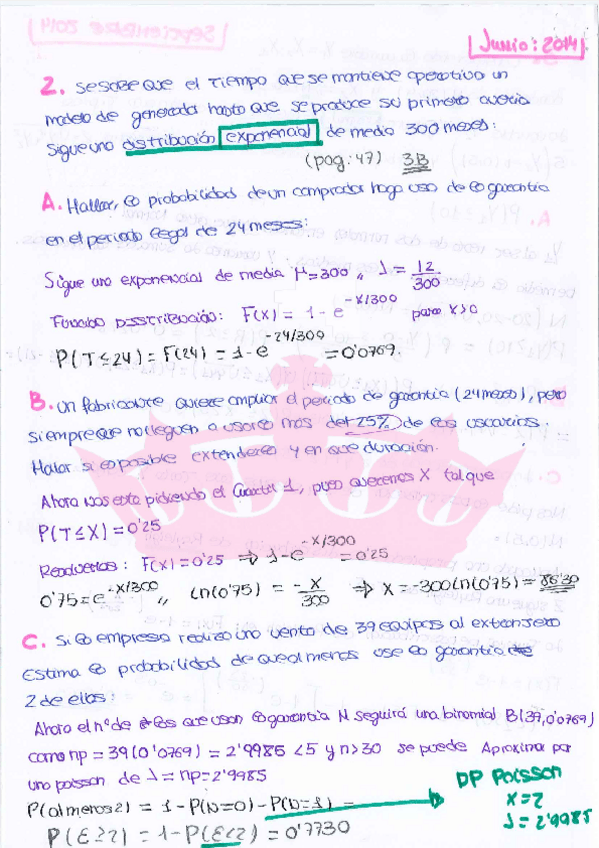 Junio: 2014
2. Se sabe que el tiempo que se mantiene operativo un
modelo de generador hasta que se produce su primera avería
sigue una distribución exponencial de media 300 meses:
(pag: 47) 3B
A. Hallar, la probabilidad de un comprador haga uso de la garantia
en el periodo legal de 24 meses:
Sigue una exponencial de media μ=300 ,, λ = 12/300
Función Distribución: F(x) = 1 - e^-x/300 para x>0
P(T≤24) = F(24) = 1 - e^-24/300 = 0'0769.
B. Un fabricante quiere ampliar el periodo de garantia (24 meses), pero
siempre que no lleguen a usarlo más del 25% de los usuarios.
Hallar si es posible extenderlo y en que duración.
Ahora nos esta pidiendo el Cuartil 1, pues queremos X tal que
P(T≤X) = 0'25
Resolvemos: F(x) = 0'25 ⇒ 1-e^-x/300 = 0'25
0'75 = e^-x/300 ,, ln(0'75) = -x/300 ⇒ x = -300ln(0'75) = 86'30
C. Si la empresa realiza una venta de 39 equipos al extranjero
Estima la probabilidad de que al menos use la garantia de
2 de ellos:
Ahora el nº de ellos que usan la garantia N seguirá una binomial B(39, 0'0769)
como np = 39(0'0769) = 2'9985 <5 y n>30 se puede Aproximar por
una poisson de λ = np = 2'9985
P(al menos 2) = 1 - P(N=0) - P(N=1) =
DP Poisson
x=2
λ = 2'9985
P(E≥2) = 1 - P(E<2) = 0'7730